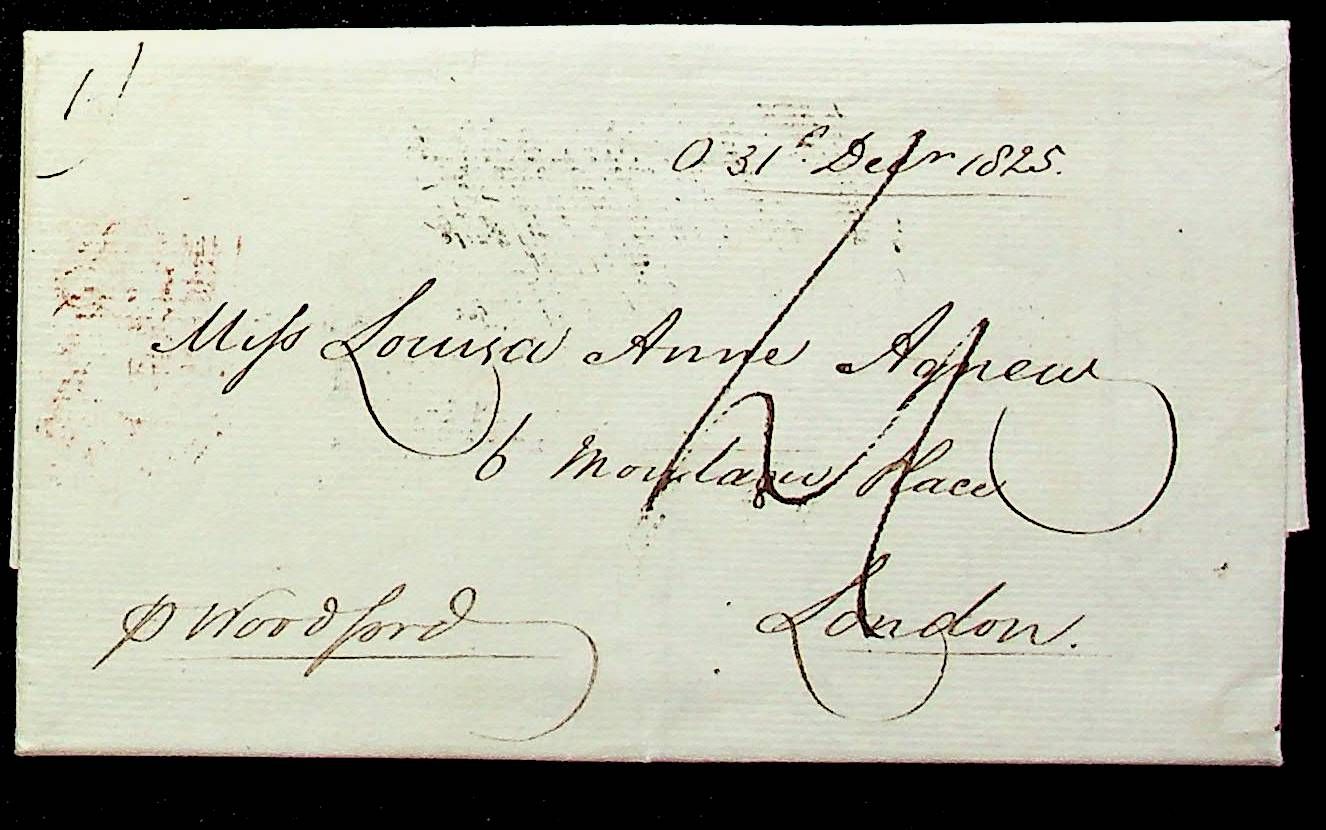 O 31st Decr 1825.
Miss Louisa Anne Agnew
6 Montague Place
London.
p Woodford